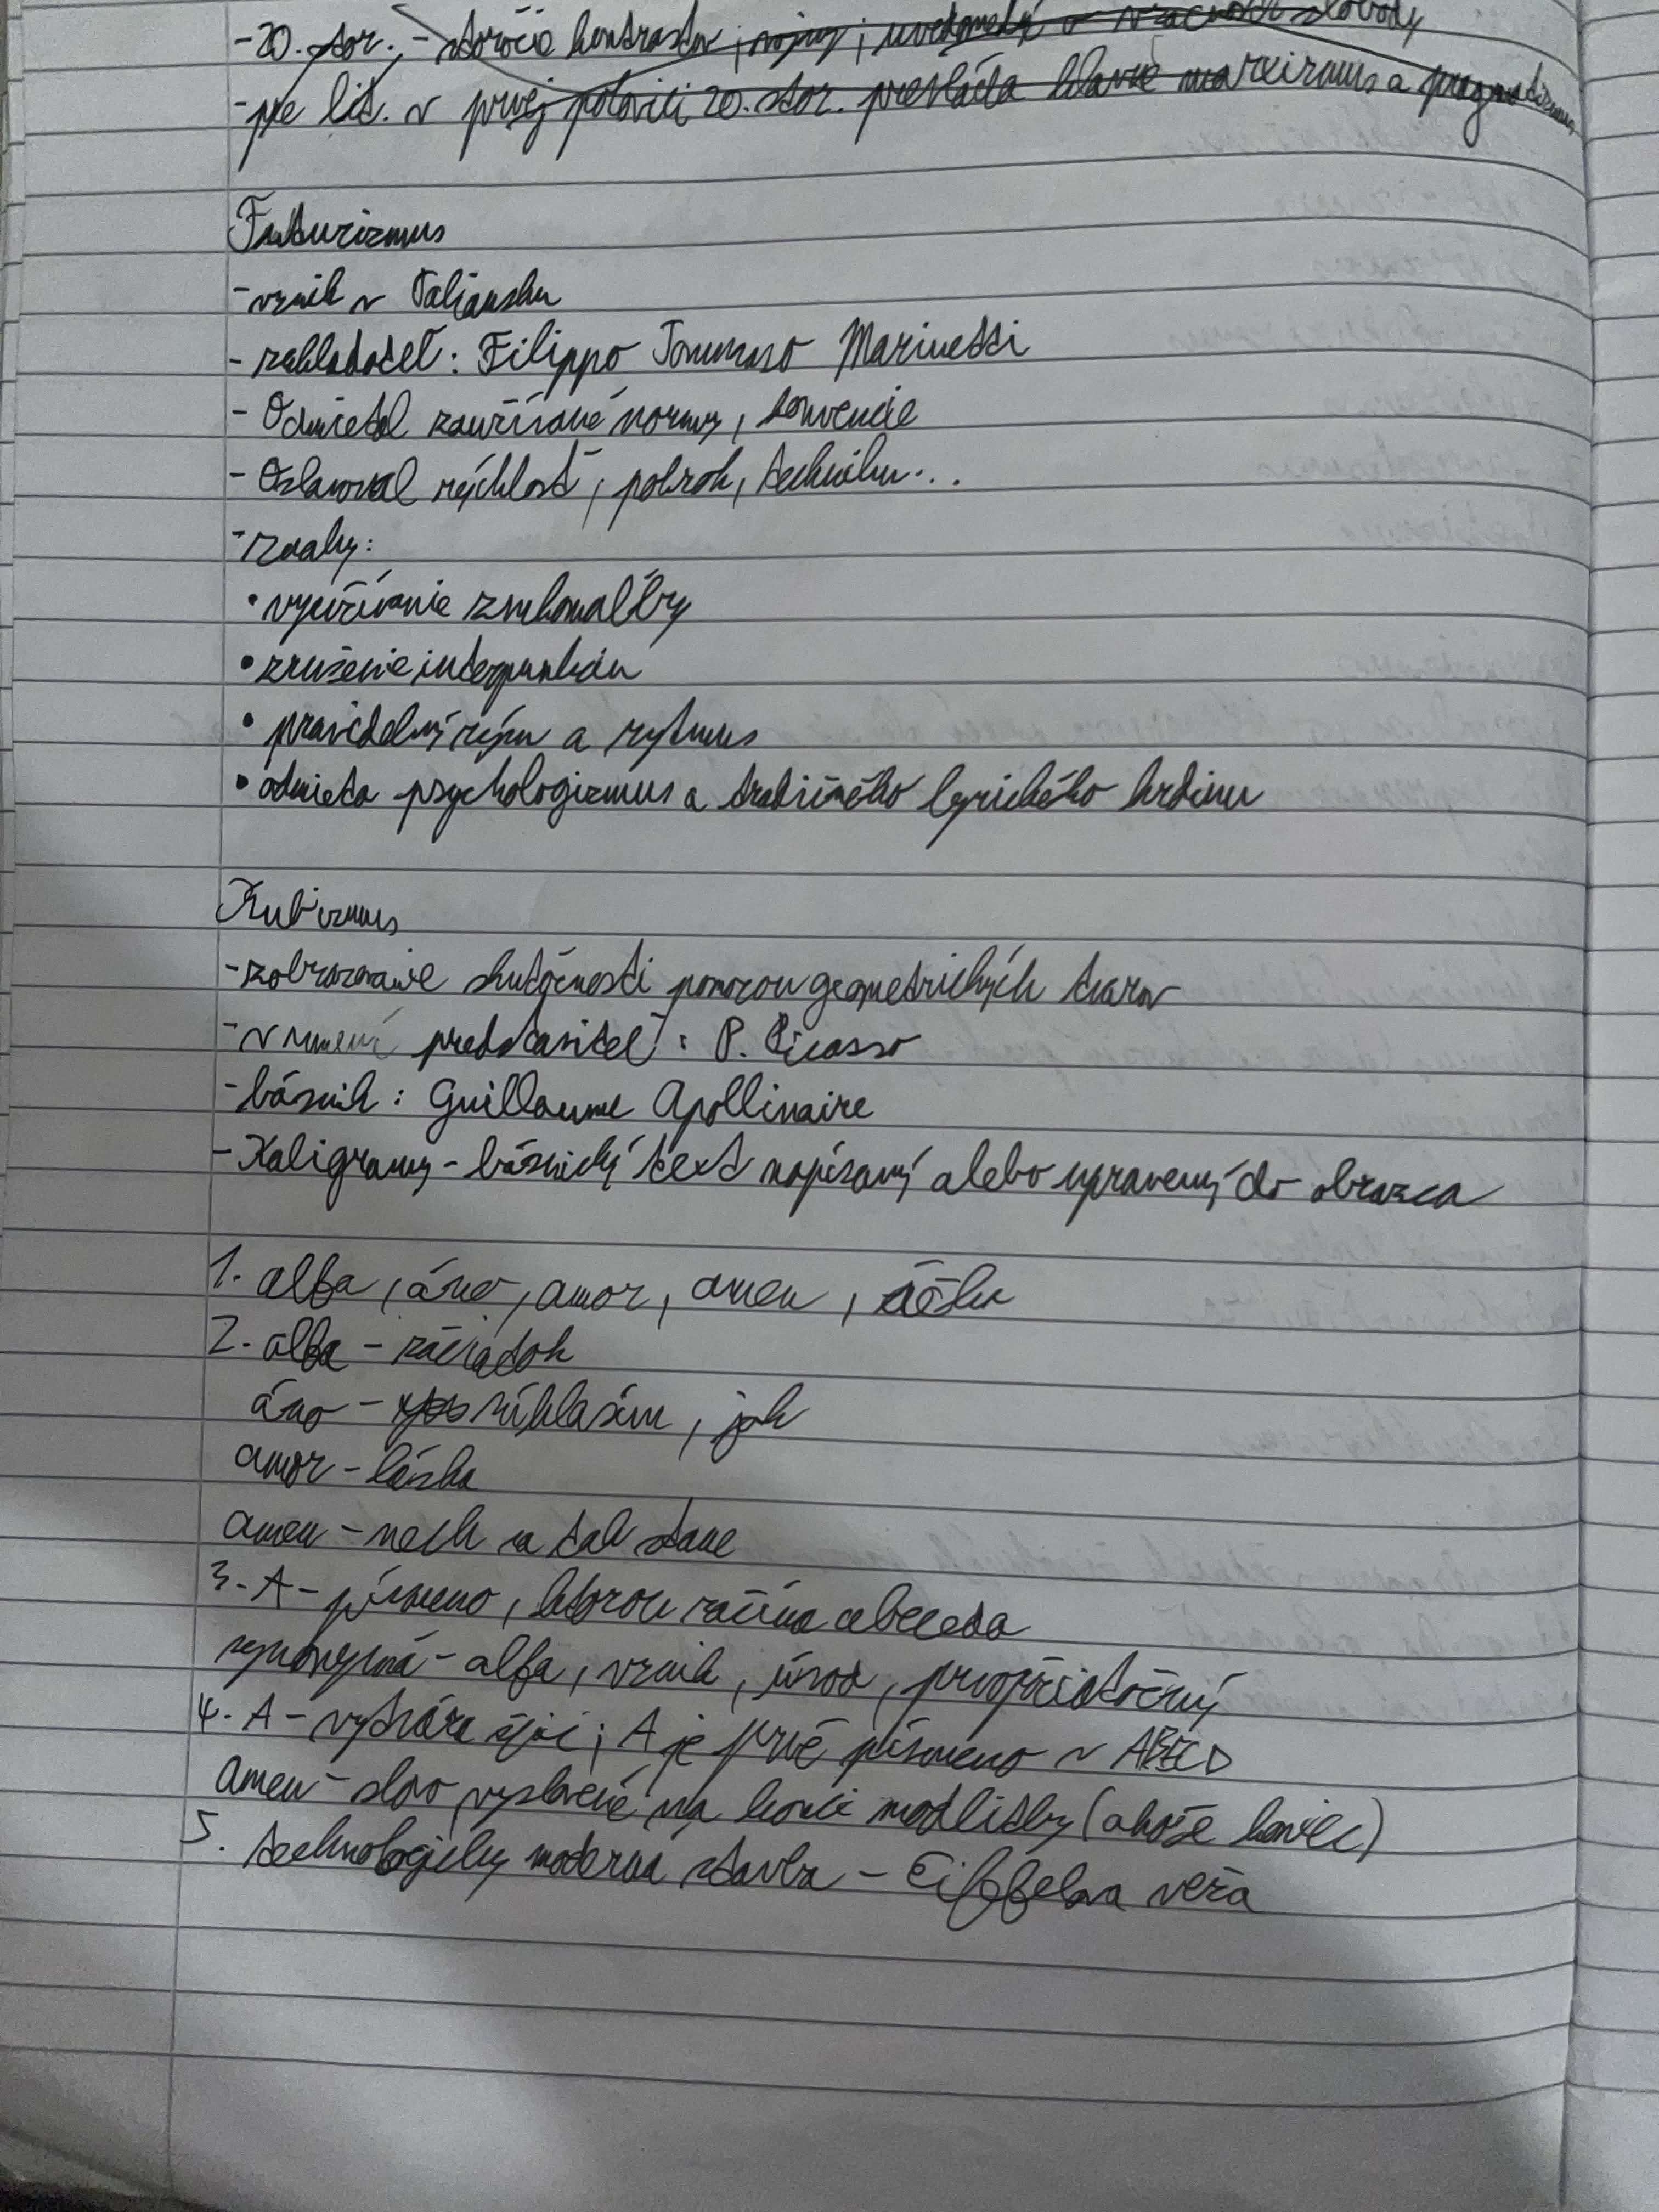 -20. stor. - storočie kontrastov, vojny, slobody
-pre lit. v prvej polovici 20. stor. prevláda hlavne marxizmus a pragmatizmus
Futurizmus
-vznik v Taliansku
-zakladateľ: Filippo Tommaso Marinetti
- Odmietal zaužívané normy, konvencie
- Oslavoval rýchlosť, pokrok, techniku...
-znaky:
•využívanie zvukomaľby
•zrušenie interpunkciu
• pravidelný rým a rytmus
•odmieta psychologizmus a tradičného lyrického hrdinu
Kubizmus
-zobrazovanie skutočnosti pomocou geometrických tvarov
-v umení predstaviteľ: P. Picasso
-básnik: Guillaume Apollinaire
-Kaligramy-básnický text napísaný alebo upravený do obrazca
1. alfa, áno, amor, amen,
2. alfa - začiadok
áno - súhlasím, jak
amor-láska
amen-nech sa tak stane
3. A- písmeno, ktorou začína abeceda
synonymá-alfa, vznik, úvod, prvopočiatočný
4. A- vytvára ; A je prvé písmeno v ABECD
Amen-slovo vyslovené na konci modlitby (akože koniec)
5. technologicky moderná stavba - Eiffelova veža